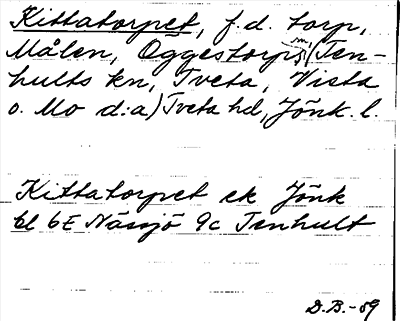 Kittatorpet, f.d. torp,
Målen, Öggestorps sn (Ten-
hults kn, Tveta, Vista
o. Mo d:a) Tveta hd, Jönk. l.
Kittatorpet ek Jönk
bl 6E Nässjö 9c Tenhult
D.B.-89